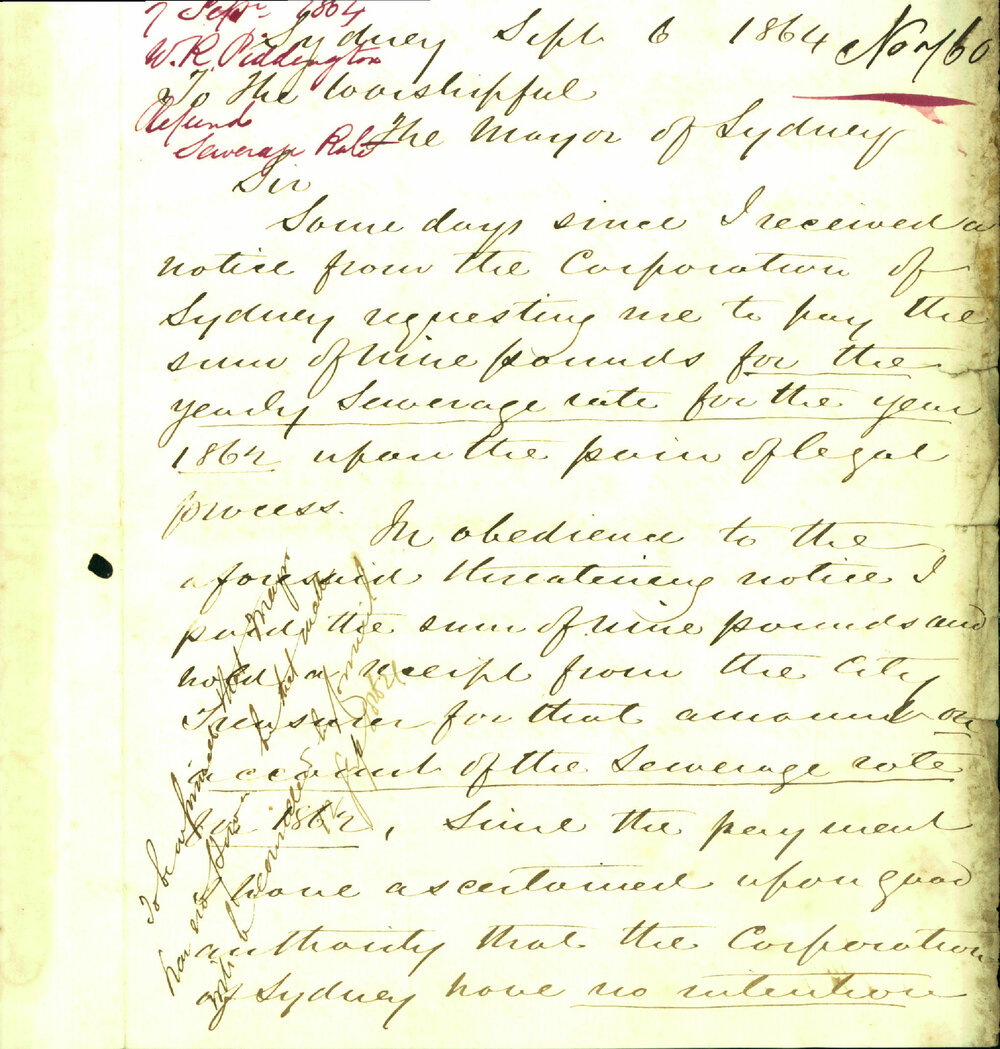 7 Sepr. 1864
W. R. Piddington
Refund
Sewerage Rate
No 760
Sydney Sept 6 1864
To The Worshipful
The Mayor of Sydney
Sir
Some days since I received a
notice from the Corporation of
Sydney requesting me to pay the
sum of nine pounds for the
yearly Sewerage rate for the year
1862 upon the pain of legal
process.
In obedience to the
aforesaid threatening notice I
paid the sum of nine pounds and
hold a receipt from the City
Treasurer for that amount on
account of the Sewerage rate
for 1862, Since the payment
I have ascertained upon good
authority that the Corporation
of Sydney have no intention
To be informed that Mayor
has no power but that matter
will be considered by Council